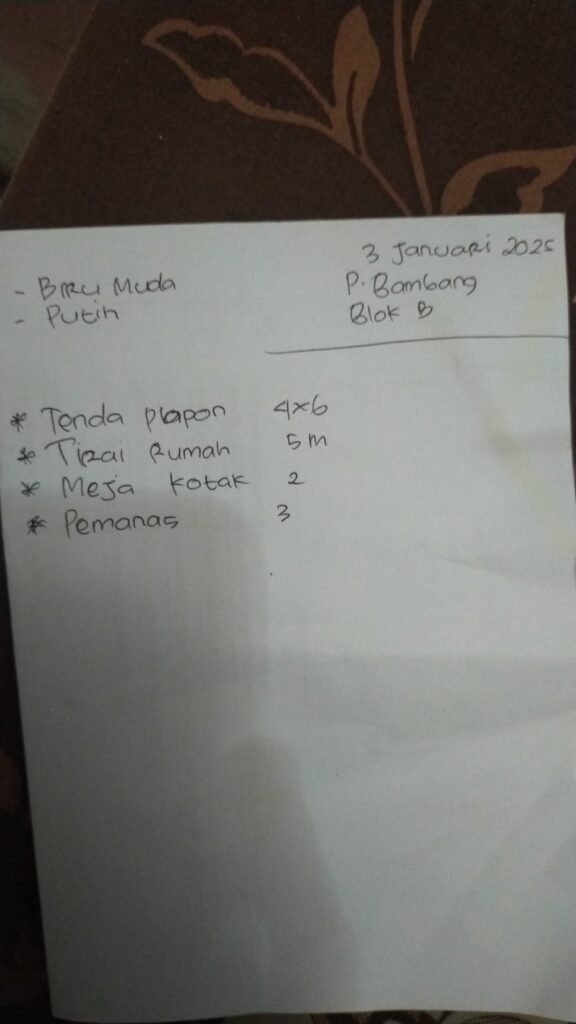 3 Januari 2025
- Biru Muda
P. Bambang
- Putih
Blok B
* Tenda plapon 4x6
* Tirai Rumah 5 m
* Meja kotak 2
* Pemanas 3